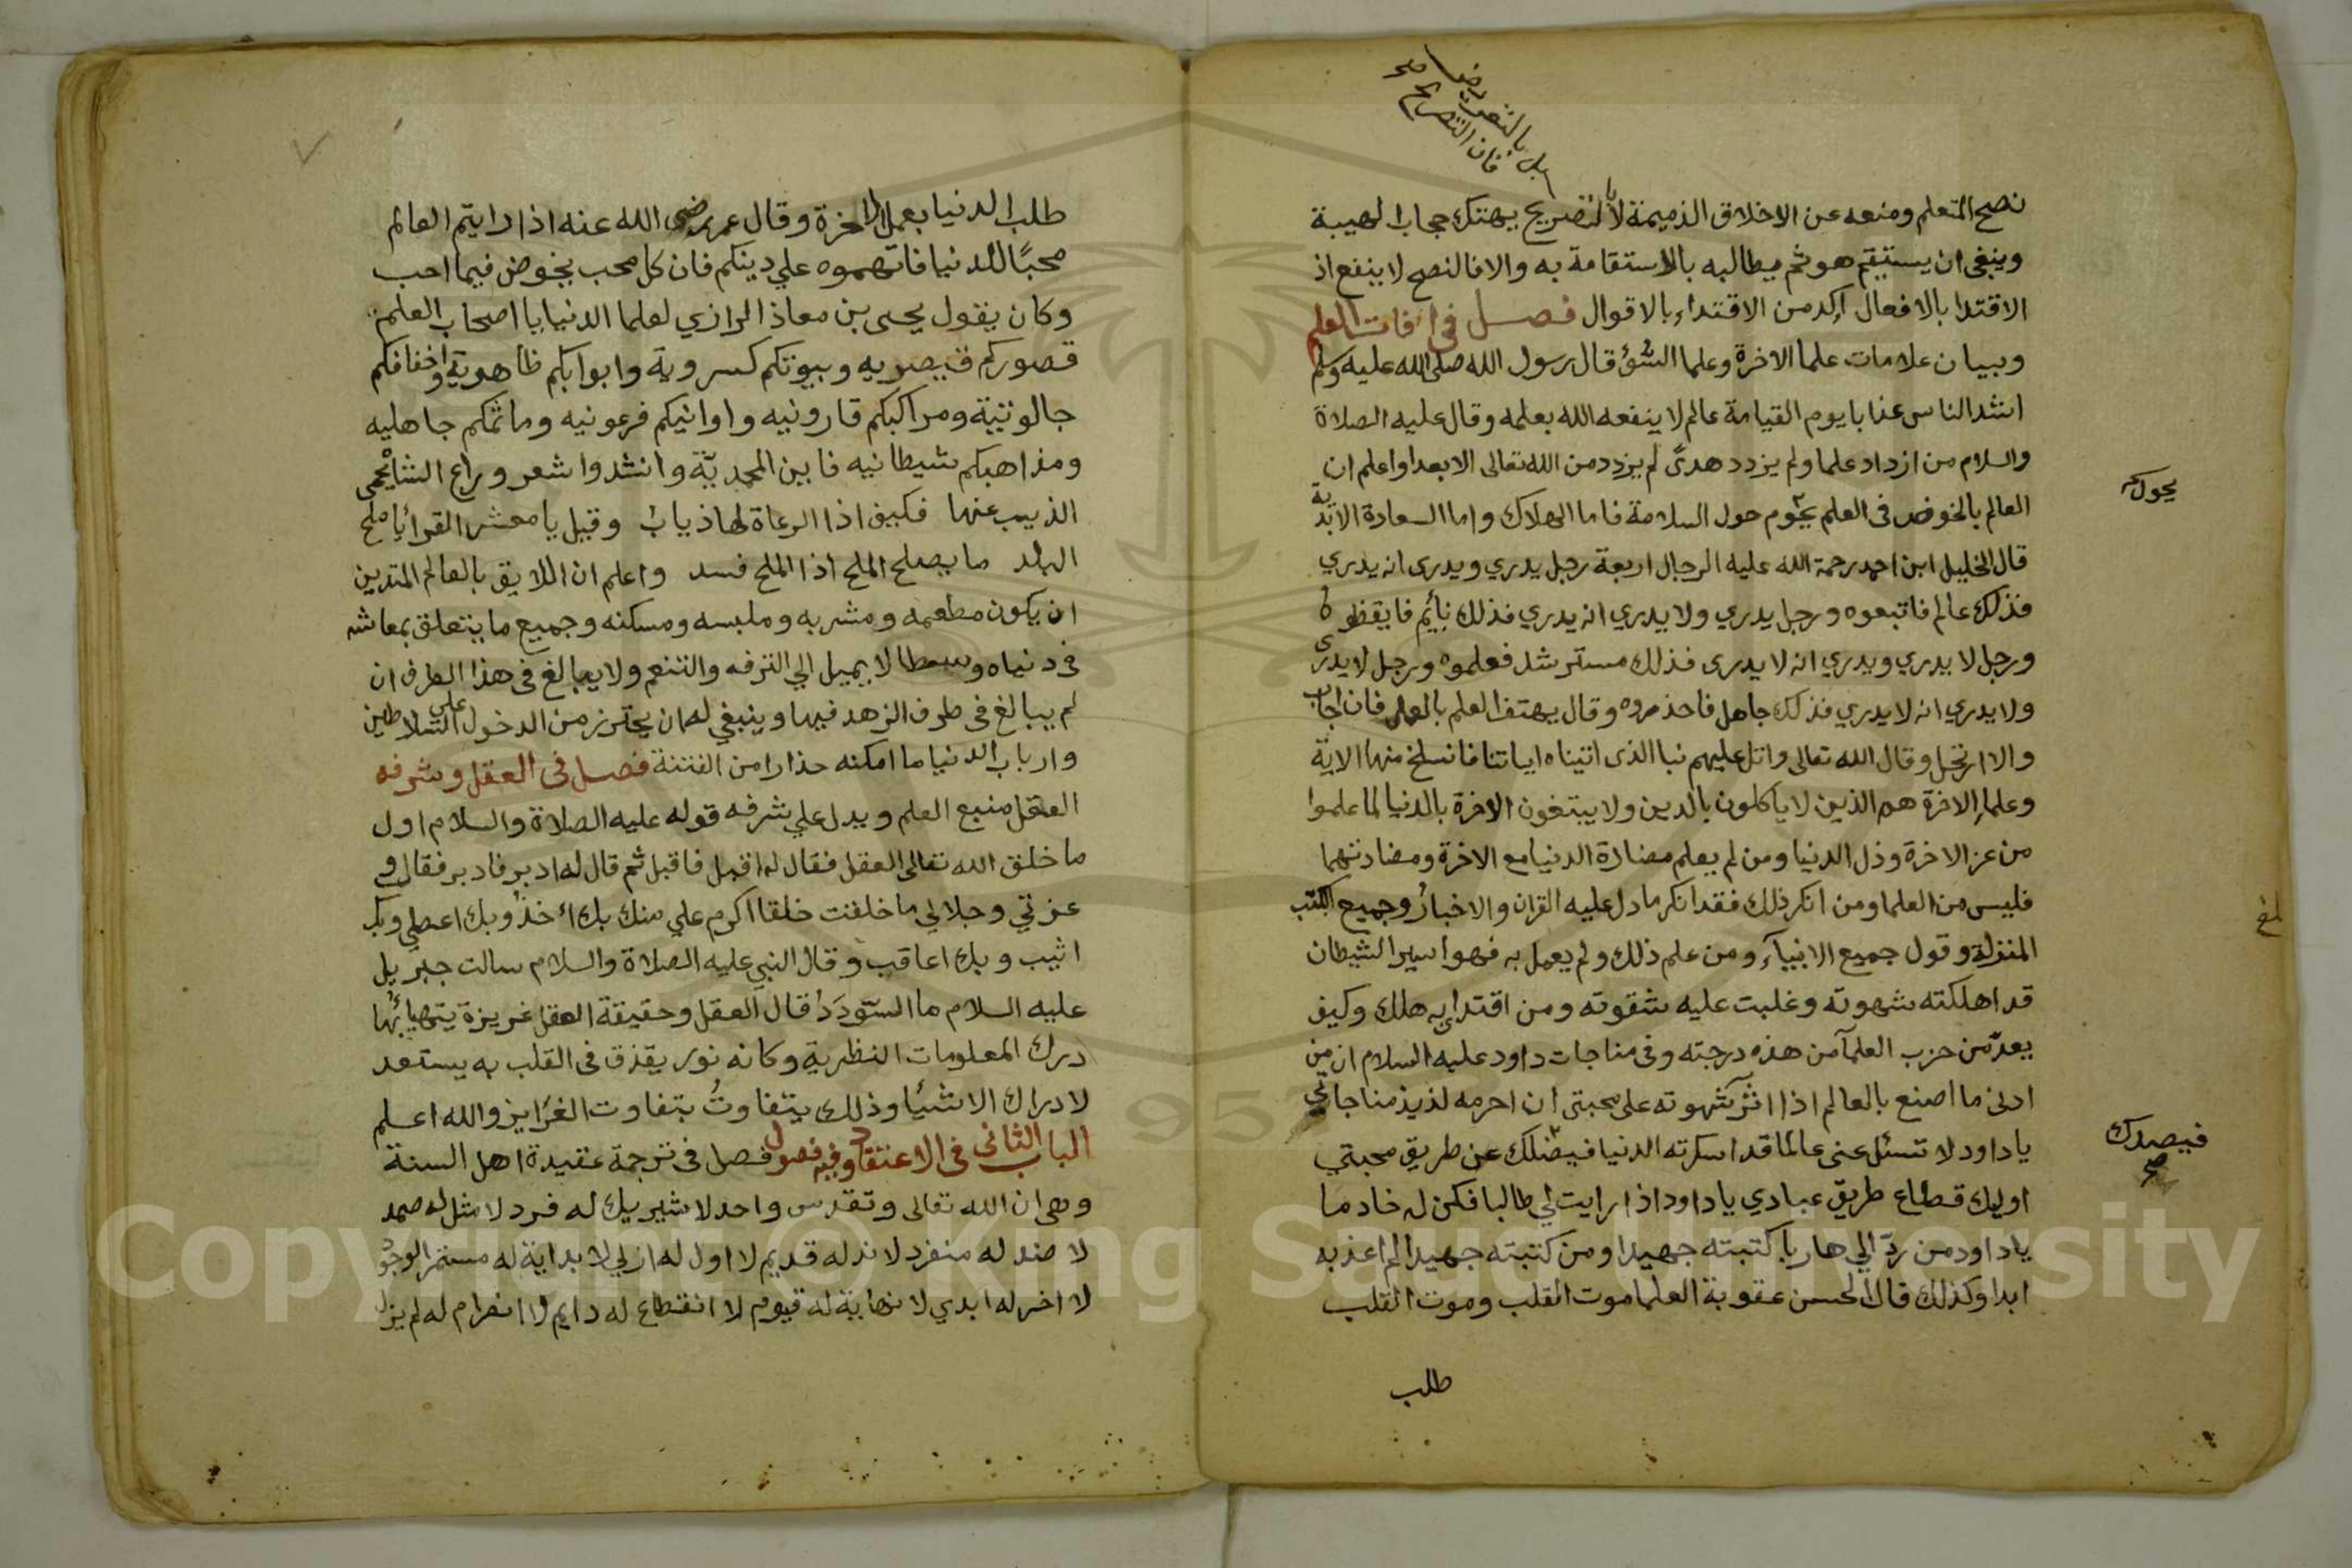 بل بالتعريض
فان التصريح صح
نصح المتعلم ومنعه عن الاخلاق الذميمة لا بالتصريح يهتك حجاب الهيبة
وينبغي ان يستقيم هو ثم يطالبه بالاستقامة به والا فالنصح لا ينفع اذ
الاقتدا بالافعال اكد من الاقتداء بالاقوال فصل في افات العلم
وبيان علامات علما الاخرة وعلما السؤ قال رسول الله صلى الله عليه وسلم
اشد الناس عذابا يوم القيامة عالم لا ينفعه الله بعلمه وقال عليه الصلاة
والسلام من ازداد علما ولم يزدد هدى لم يزدد من الله تعالى الا بعدا واعلم ان
العالم بالخوض في العلم يحوم حول السلامة فاما الهلاك واما السعادة الابدية
يحول
قال الخليل ابن احمد رحمة الله عليه الرجال اربعة رجل يدري ويدرى انه يدري
فذلك عالم فاتبعوه ورجل يدري ولا يدري انه يدري فذلك نايم فايقظوه
ورجل لا يدري ويدري انه لا يدرى فذلك مسترشد فعلموه ورجل لا يدرى
ولا يدري انه لا يدري فذلك جاهل فاحذروه وقال يهتف العلم بالعمل فان اجاب
والا ارتحل وقال الله تعالى واتل عليهم نبا الذى اتيناه اياتنا فانسلخ منها الاية
وعلما الاخرة هم الذين لا ياكلون بالدين ولا يبتغون الاخرة بالدنيا لما علموا
من عز الاخرة وذل الدنيا ومن لم يعلم مضادة الدنيا مع الاخرة ومضادتهما
فليس من العلما ومن انكر ذلك فقد انكر ما دل عليه القران والاخبار وجميع الكتب
المنزلة وقول جميع الانبياء ومن علم ذلك ولم يعمل به فهو اسير الشيطان
قد اهلكته شهوته وغلبت عليه شقوته ومن اقتدا به هلك وكيف
يعد من حزب العلما من هذه درجته وفي مناجات داود عليه السلام ان من
ادنى ما اصنع بالعالم اذا اثر شهوته على محبتى ان احرمه لذيذ مناجاتي
يا داود لا تسئل عني عالما قد اسكرته الدنيا فيضلك عن طريق محبتي
فيصدك
صح
اوليك قطاع طريق عبادي يا داود اذا رايت لي طالبا فكن له خادما
يا داود من رد الي هاربا كتبته جهيدا ومن كتبته جهيدا لم اعذبه
ابدا وكذلك قال الحسن عقوبة العلما موت القلب وموت القلب
طلب
طلب الدنيا بعمل الاخرة وقال عمر رضى الله عنه اذا رايتم العالم
محبا للدنيا فاتهموه علي دينكم فان كل محب يخوض فيما احب
وكان يقول يحيى بن معاذ الرازي لعلما الدنيا يا اصحاب العلم
قصوركم قيصريه وبيوتكم كسروية وابوابكم ظاهرية واخفافكم
جالوتية ومراكبكم قارونيه واوانيكم فرعونيه وماثمكم جاهليه
ومذاهبكم شيطانيه فاين المحمدية وانشدوا شعر وراع الشاة يحمى
الذيب عنها فكيف اذا الرعاة لها ذياب وقيل يا معشر القرا يا ملح
البلد ما يصلح الملح اذا الملح فسد واعلم ان اللايق بالعالم المتدين
ان يكون مطعمه ومشربه وملبسه ومسكنه وجميع ما يتعلق بمعاشه
في دنياه وسطا لا يميل الي الترفه والتنعم ولا يبالغ في هذا الطرف ان
لم يبالغ في طرف الزهد فيها وينبغي له ان يحترز من الدخول على السلاطين
وارباب الدنيا ما امكنه حذارا من الفتنة فصل في العقل وشرفه
العقل منبع العلم ويدل علي شرفه قوله عليه الصلاة والسلام اول
ما خلق الله تعالى العقل فقال له اقبل فاقبل ثم قال له ادبر فادبر فقال و
عزتي وجلالي ما خلقت خلقا اكرم علي منك بك اخذ وبك اعطي وبك
اثيب وبك اعاقب وقال النبي عليه الصلاة والسلام سالت جبريل
عليه السلام ما السودد قال العقل وحقيقة العقل غريزة يتهيا بها
درك المعلومات النظرية وكانه نور يقذف في القلب به يستعد
لادراك الاشيا وذلك يتفاوت بتفاوت الغرايز والله اعلم
الباب الثاني في الاعتقاد وفيه فصول فصل في ترجمة عقيدة اهل السنة
وهي ان الله تعالى وتقدس واحد لا شريك له فرد لا مثل له صمد
لا ضد له منفرد لا ند له قديم لا اول له ازلي لا بداية له مستمر الوجود
لا اخر له ابدي لا نهاية له قيوم لا انقطاع له دايم لا انصرام له لم يزل
Copyright © King Saud University